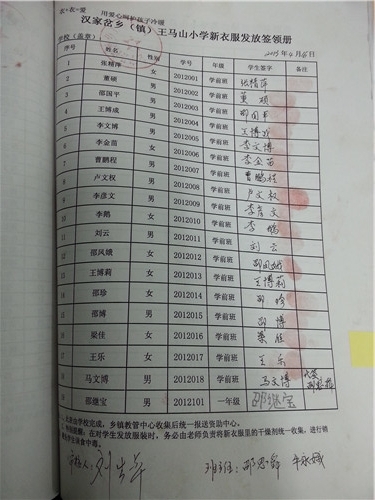 衣+衣=爱 用爱心呵护孩子冷暖
汉家岔乡（镇）王马山小学新衣服发放签领册
学校（盖章） 2013年4月
序号 姓名 性别 学号 年级 学生签字 备注
1 张精萍 女 2012001 学前班 张精萍
2 董硕 男 2012002 学前班 董硕
3 邵国平 男 2012003 学前班 邵国平
4 王博成 男 2012004 学前班 王博成
5 李文博 男 2012005 学前班 李文博
6 李金苗 女 2012006 学前班 李金苗
7 曹鹏程 男 2012007 学前班 曹鹏程
8 卢文权 男 2012008 学前班 卢文权
9 李彦文 男 2012009 学前班 李彦文
10 李鹅 女 2012010 学前班 李鹅
11 刘云 男 2012011 学前班 刘云
12 邵凤娥 女 2012012 学前班 邵凤娥
13 王博莉 女 2012013 学前班 王博莉
14 邵珍 女 2012014 学前班 邵珍
15 邵博 男 2012015 学前班 邵博
16 梁佳 女 2012016 学前班 梁佳
17 王乐 女 2012017 学前班 王乐
18 马文博 男 2012018 学前班 马文博
邵继宝 男 2012101 一年级 邵继宝
学校完成，乡镇教管中心收集后统一报送资助中心。
特别提醒：在对学生发放服装时，务必由老师负责将新衣服里的干燥剂统一收集，进行销
误食中毒。
班主任：